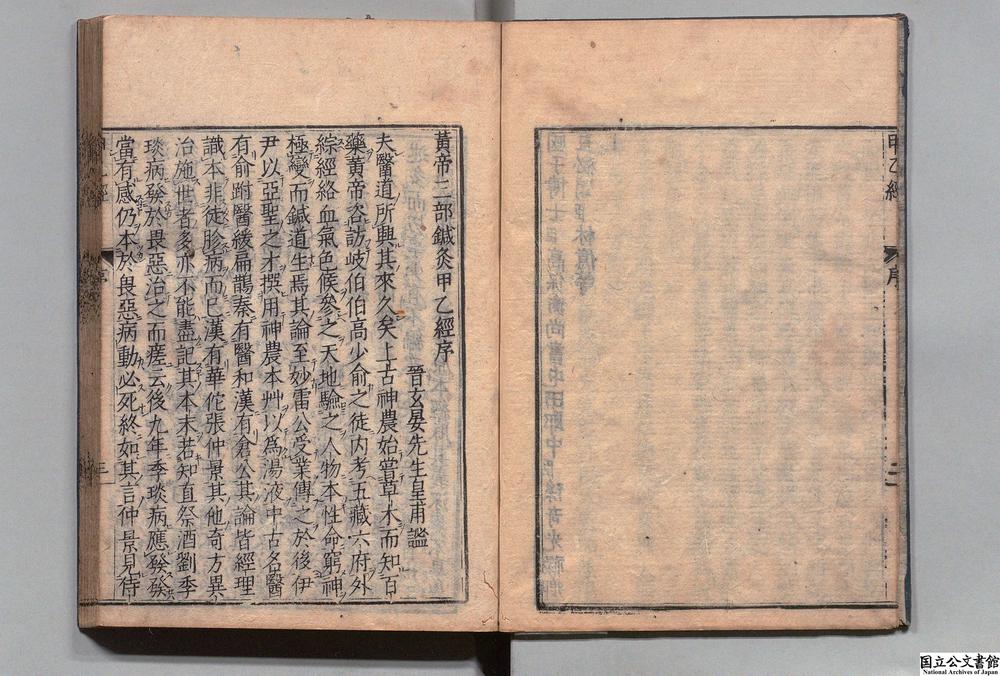 甲乙經 序 二
黃帝三部鍼灸甲乙經序
晉玄晏先生皇甫謐
夫醫道所興其來久矣上古神農始嘗草木而知百
藥黃帝咨訪岐伯伯高少俞之徒内考五藏六府外
綜經絡血氣色候參之天地驗之人物本性命窮神
極變而鍼道生焉其論至妙雷公受業傳之於後伊
尹以亞聖之才撰用神農本艸以爲湯液中古名醫
有俞跗醫緩扁鵲秦有醫和漢有倉公其論皆經理
識本非徒胗病而已漢有華佗張仲景其他奇方異
治施世者多亦不能盡記其本末若知直祭酒劉季
琰病發於畏惡治之而瘥云後九年季琰病應發發
當有感仍本於畏惡病動必死終如其言仲景見侍
甲乙經 序 三
国立公文書館
National Archives of Japan